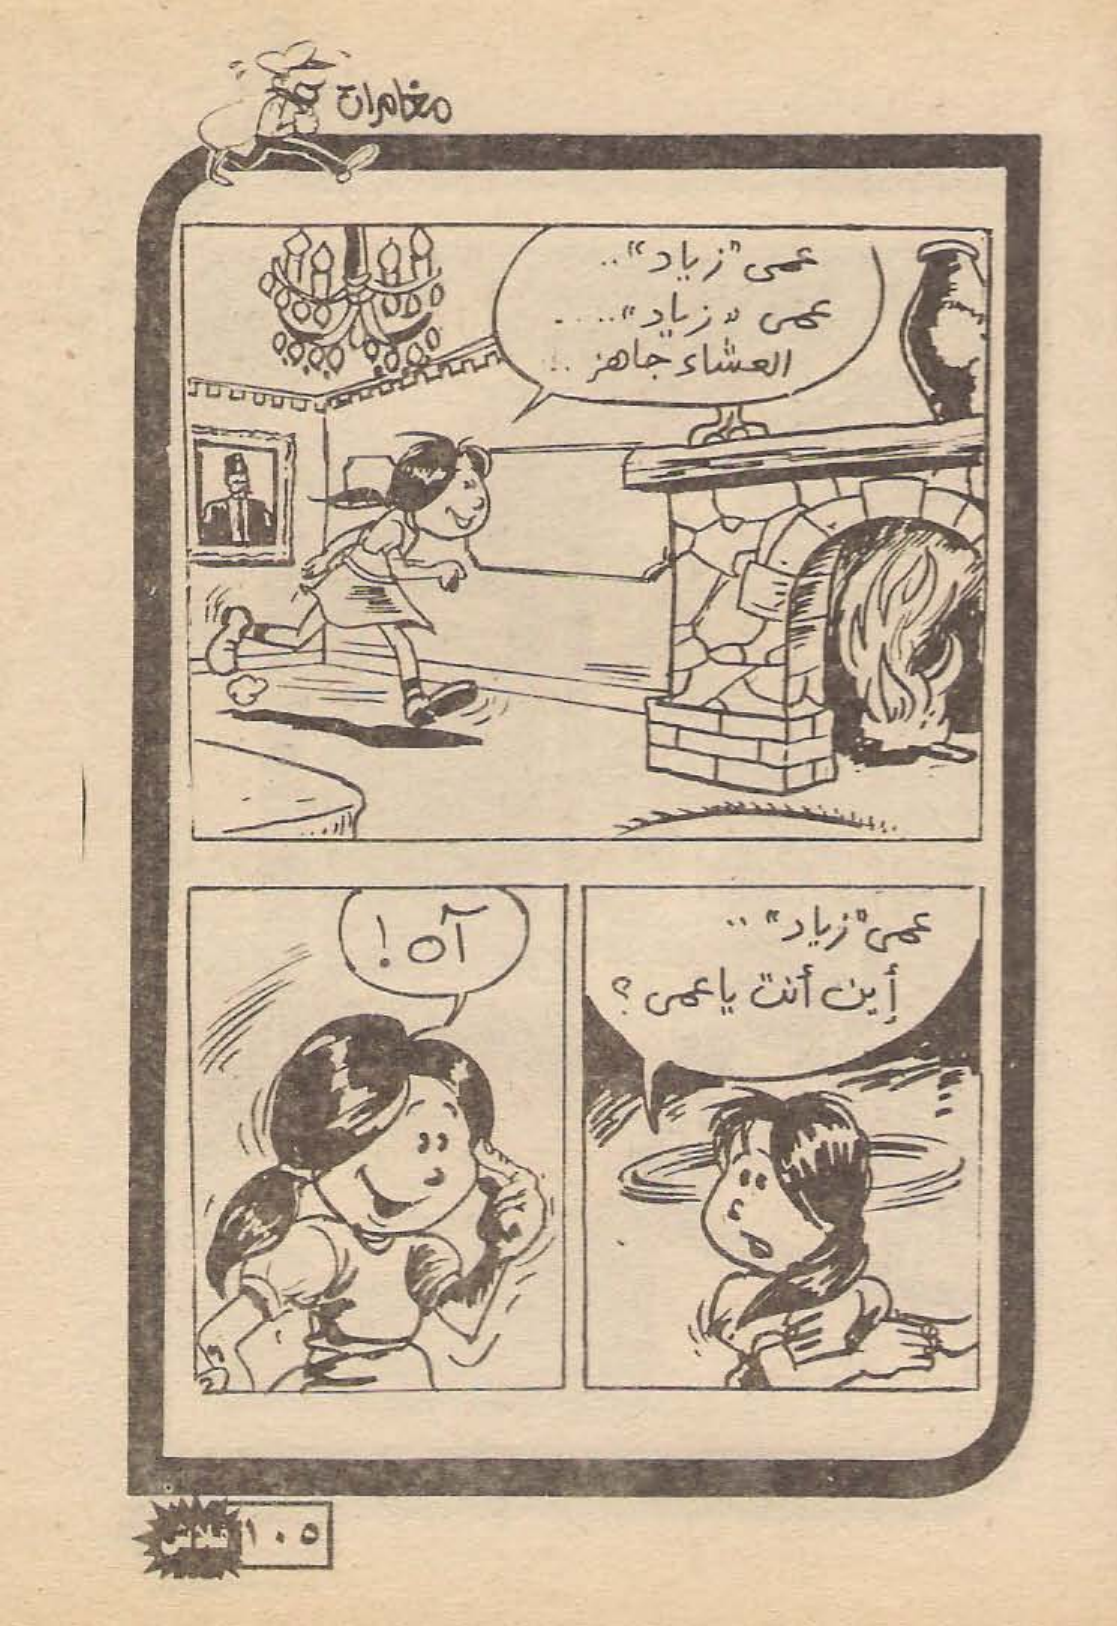 مغامرات
عمى "زياد"..
عمى "زياد"....
العشاء جاهز ..
عمى "زياد" ..
أين أنت ياعمى ؟
آه !
فلاش ١٠٥